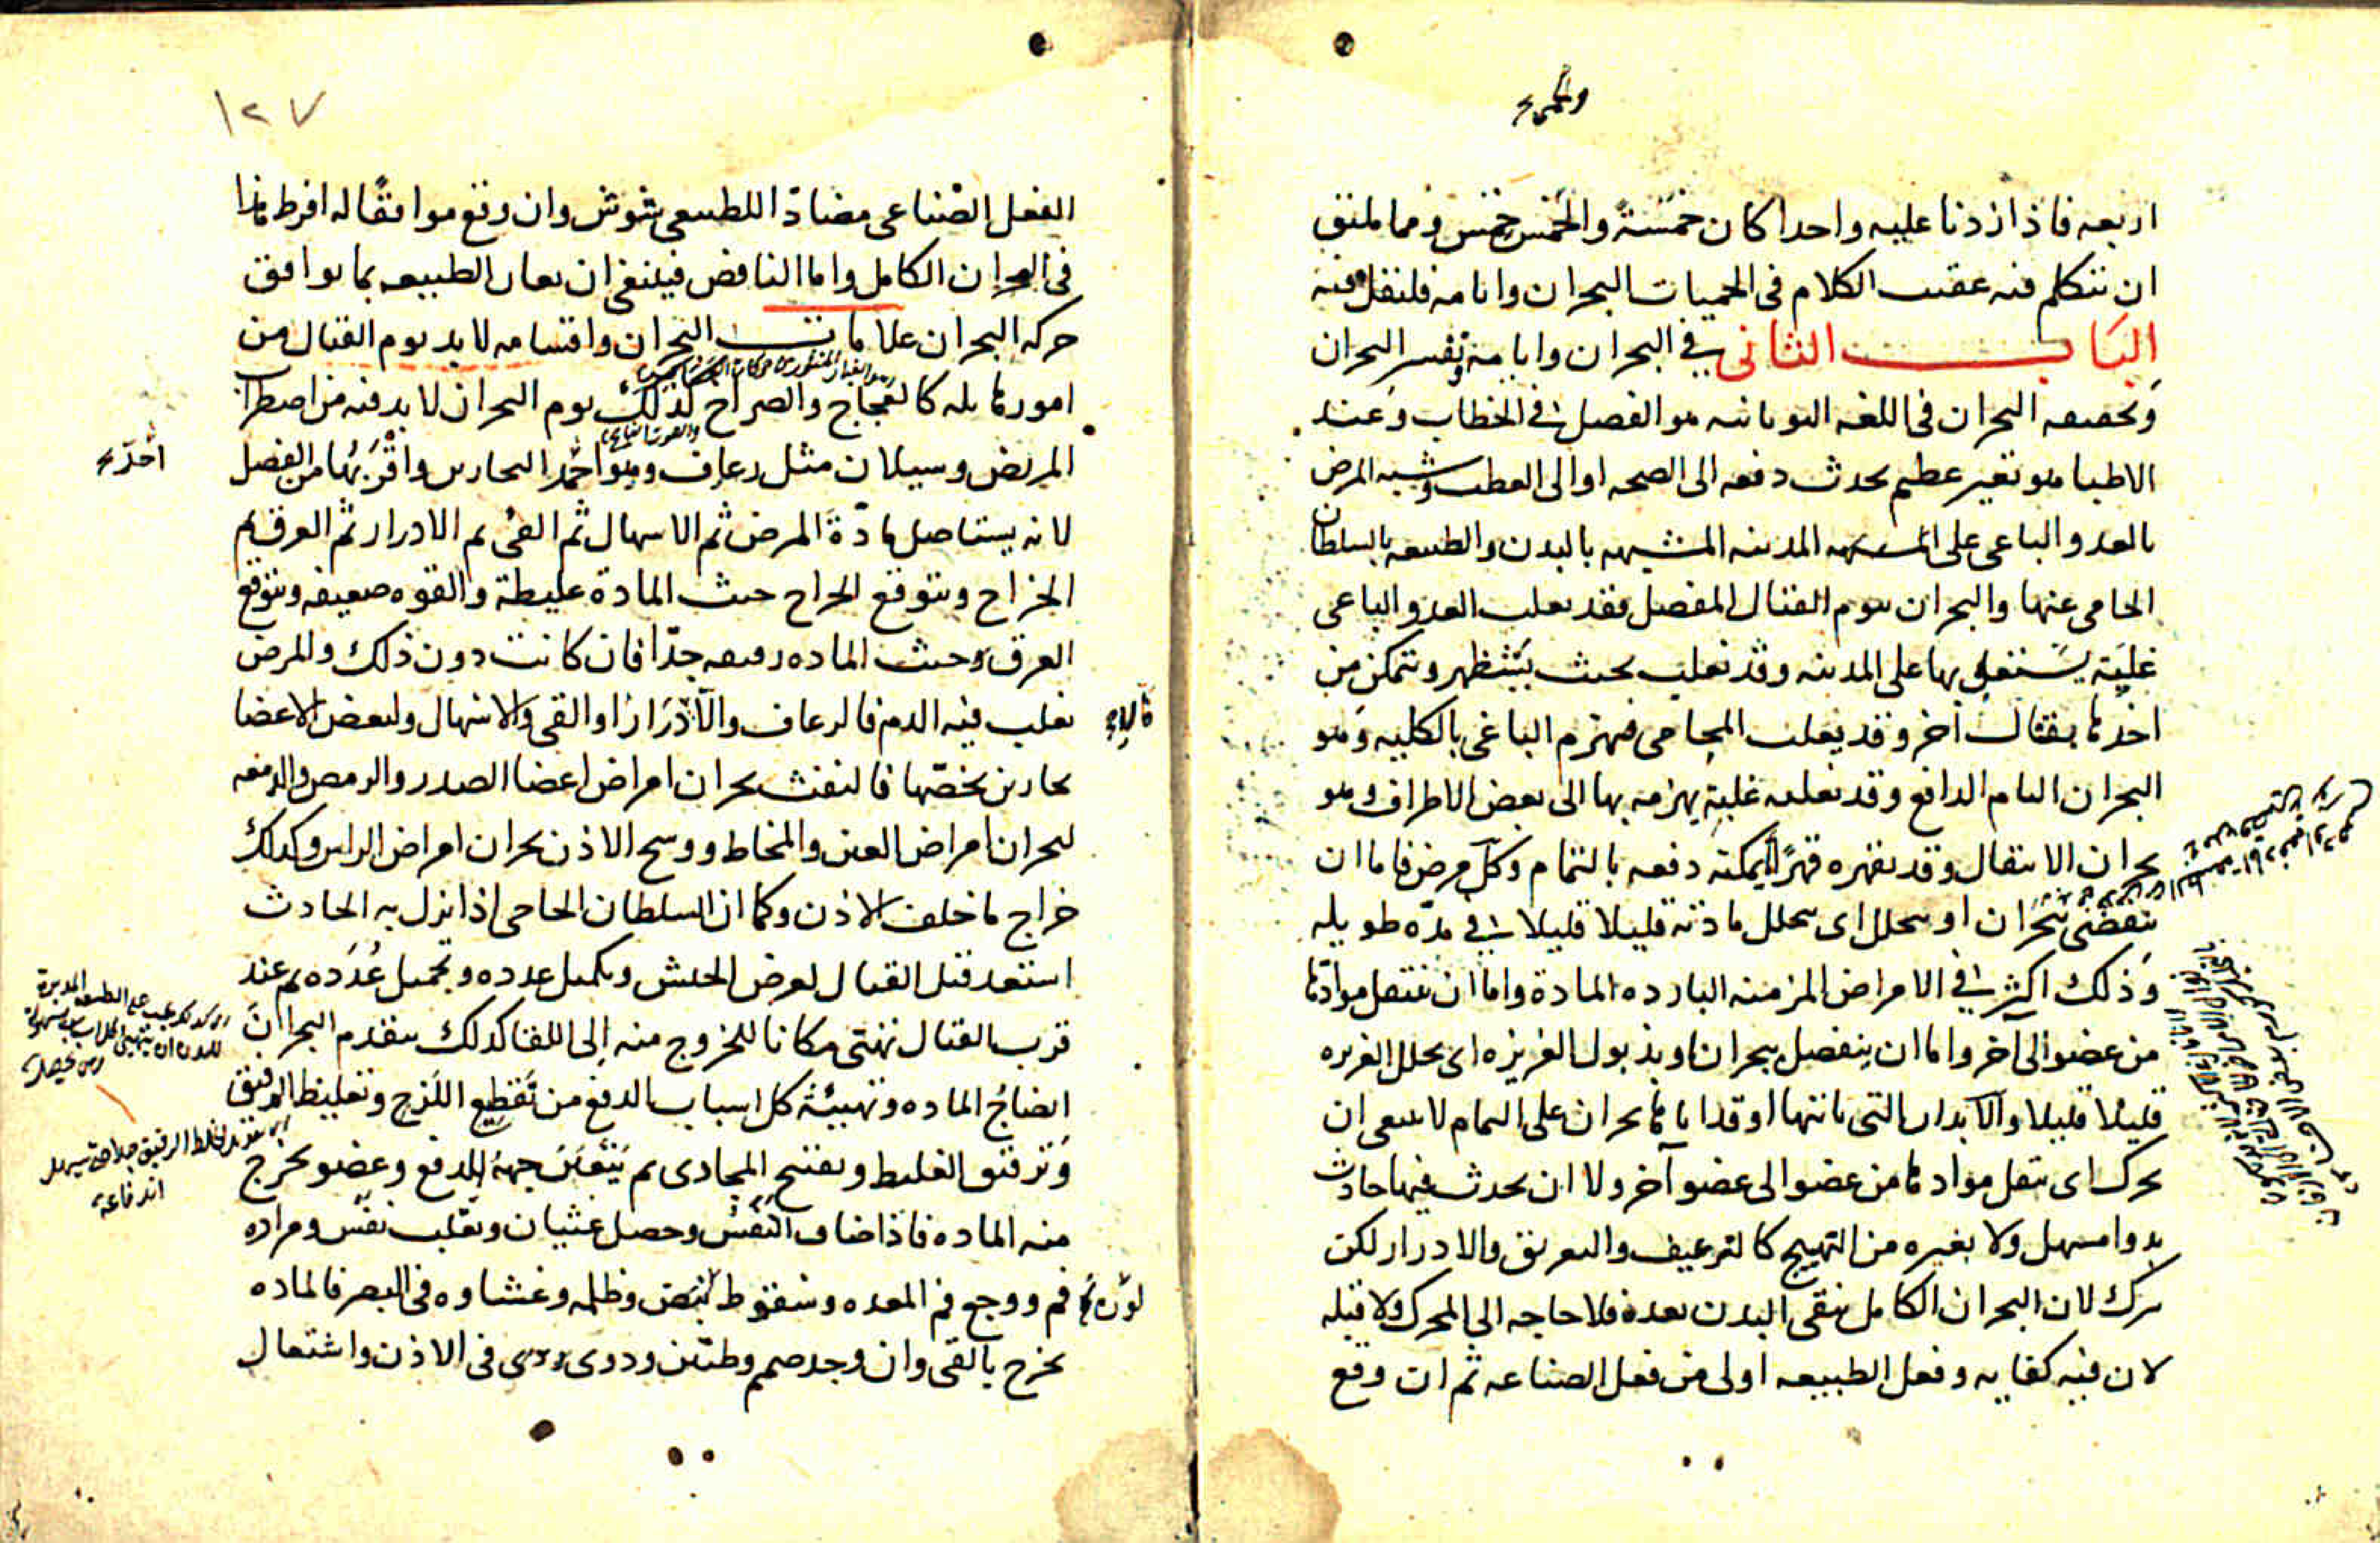 ولخمس
اربعه فاذا زدنا عليه واحدا كان خمسة والخمس خمس ومما يليق
ان نتكلم فيه عقيب الكلام فى الحميات البحران وايامه فلنقل فيه
الباب الثانى في البحران وايامه وتفسير البحران
وتحقيقه البحران فى اللغه اليونانيه هو الفصل في الخطاب وعند
الاطبا هو تغير عظيم يحدث دفعه الى الصحه او الى العطب وشبه المرض
بالعدو الباغى على المدينه المشبهه بالبدن والطبيعه بالسلطان
الحامى عنها والبحران بيوم القتال المفصل فقد يغلب العدو الباغى
غلبة يستولى بها على المدينه وقد يغلب بحيث يستظهر ويتمكن من
اخذها بقتال آخر وقد يغلب الحامى فيهزم الباغى بالكليه وهو
البحران التام الدافع وقد يغلبه غلبة يهزمه بها الى بعض الاطراف وهو
بحران الانتقال وقد يقهره قهرا يمكنه دفعه بالتمام وكل مرض فاما ان
ينقضى ببحران او بتحلل اى بتحلل مادته قليلا قليلا في مدة طويله
وذلك اكثر في الامراض المزمنه البارده المادة واما ان تنتقل موادها
من عضو الى آخر واما ان ينفصل ببحران او بذبول الغريزه اى بتحلل الغريزه
قليلا قليلا والابدان التى ياتيها او قد اتاها بحران على التمام لا ينبغى ان
تحرك اى تنقل موادها من عضو الى عضو آخر ولا ان يحدث فيها حادث
بدوا مسهل ولا بغيره من التهييج كالترعيف والتعريق والادرار لكن
تترك لان البحران الكامل ينقى البدن بعده فلا حاجه الى المحرك ولا قبله
لان فيه كفايه وفعل الطبيعه اولى من فعل الصناعه ثم ان وقع
١٢٧
الفعل الصناعى مضادا للطبيعى شوش وان وقع موافقا له افرط هذا
فى البحران الكامل واما الناقص فينبغى ان تعان الطبيعه بما يوافق
حركه البحران علامات البحران واقسامه لا بد يوم القتال من
امور هايله كالعجاج والصراخ كذلك يوم البحران لا بد فيه من اضطراب
المريض وسيلان مثل رعاف وهو احمد البحارين واقربها من الفصل
احدّ
لانه يستاصل مادة المرض ثم الاسهال ثم القى ثم الادرار ثم العرق ثم
الخراج ويتوقع الخراج حيث المادة غليظة والقوه ضعيفه ويتوقع
العرق وحيث الماده رقيقه جدا فان كانت دون ذلك والمرض
يغلب فيه الدم فالرعاف والا ادرارا او القى والاسهال ولبعض الاعضا
بحارين تخصها فالنفث بحران امراض اعضا الصدر والرمص والدمعه
لبحران امراض العين والمخاط ووسخ الاذن بحران امراض الراس وكذلك
خراج ما خلف الاذن وكما ان السلطان الحامى اذا نزل به الحادث
استعد قبل القتال لعرض الجيش وتكميل عدده وتجميل عدده ثم عند
قرب القتال تهيئ مكانا للخروج منه الى اللقا كذلك يتقدم البحران
انضاج الماده وتهييئة كل اسباب الدفع من تقطيع اللزج وتغليظ الرقيق
وترقيق الغليظ وتفتيح المجارى ثم يتعين جهة للدفع وعضو يخرج
اندفاعه
منه الماده فاذا ضاق النفس وحصل غثيان وتقلب نفس ومراره
فم ووجع فم المعده وسقوط نبض وظلمه وغشاوه فى البصر فالماده
تخرج بالقى وان وجد صمم وطنين ودوى فى الاذن واشتعال